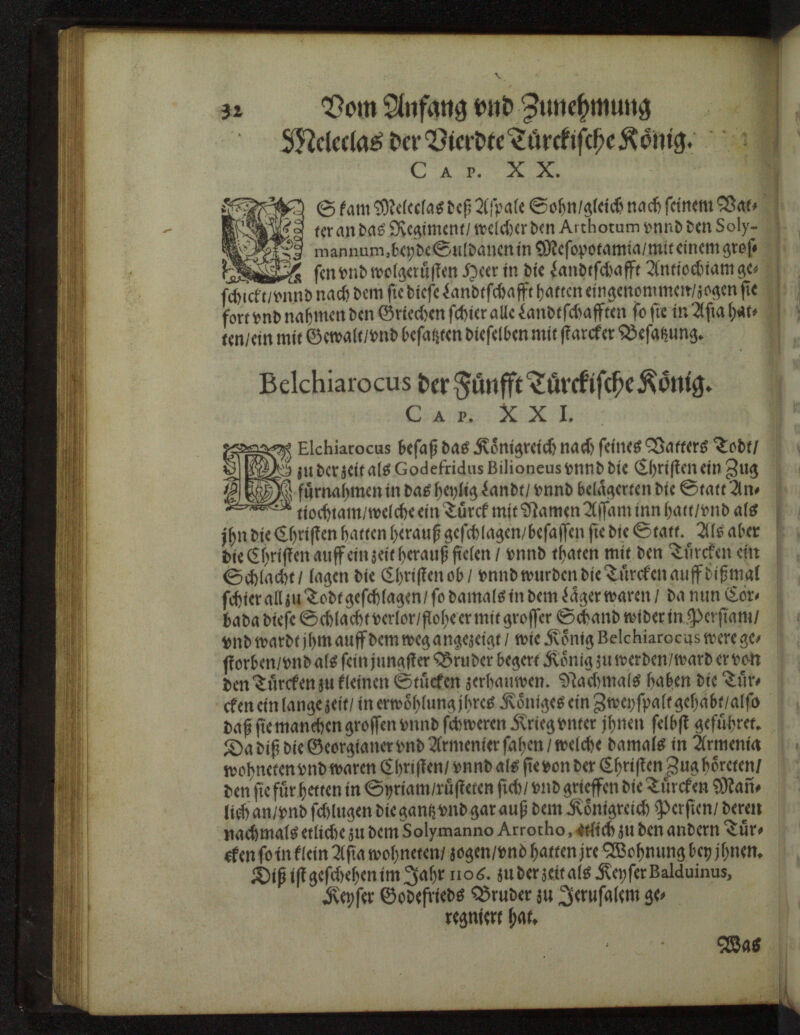 32 Vom Anfang vnd Zunehmung
Meleclas der Vierdte Türckische König.
CAP. XX.
ES kam Meleclas deß Aspale Sohn/gleich nach seinem Vat-
ter an das Regiment/ welcher den Arthotum vnnd den Soly-
mannum, beyde Sulbanen in Mesopotamia/mit einem gros-
sen vnd wolgerüsten Heer in die Landtschafft Anttiochiam ge-
schickt/vnnd nach dem sie diese Landtschafft hatten eingenommen/zogen sie
fort vnd nahmen den Griechen schier alle Landtschafften so sie in Asia hat-
ten/ein mit Gewalt/vnd besatzten dieselben mit starcker Besatzung.
Belchiarocus der Fünfft Türckische König.
CAP. XXI.
BElchiarocus besaß das Königreich nach seines Vatters Todt/
zu der zeit als Godefridus Bilioneus vnnd die Christen ein Zug
fürnahmen in das heylig Landt/ vnnd belägerten die Statt An-
tiochiam/welche ein Türck mit Namen Assam inn hatt/vnd als
jhn die Christen hatten herauß geschlagen/besassen sie die Statt. Als aber
die Christen auff ein zeit herauß fielen / vnnd thaten mit den Türcken ein
Schlacht / lagen die Christen ob / vnnd wurden die Türcken auff dißmal
schier all zu Todt geschlagen/ so damals in dem Läger waren / da nun Cor-
baba diese Schlacht verlor/flohe er mit grosser Schand wider in Persiam/
vnd wardt jhm auff dem weg angezeigt / wie König Belchiarocus were ge-
storben/vnd als sein jungster Bruder begert König zu werden/ward er von
den Türcken zu kleinen Stücken zerhauwen. Nachmals haben die Tür-
cken ein lange zeit/ in erwöhlung jhres Königes ein Zweyspalt gehabt/also
daß sie manchen grossen vnnd schweren Krieg vnter jhnen selbst geführet.
Da diß die Georgianer vnd Armenier sahen / welche damals in Armenia
wohneten vnd waren Christen/ vnnd als sie von der Christen Zug höreten/
den sie für hetten in Syriam/rüsteten sich/ vnd grieffen die Türcken Mañ-
lich an/vnd schlugen die gantz vnd gar auß dem Königreich Persien/ deren
nachmals etliche zu dem Solymanno Arrotho, etlich zu den andern Tür-
cken so in klein Asia wohneten/ zogen/vnd hatten jre Wohnung bey jhnen.
Diß ist geschehen im Jahr 1106. zu der zeit als Keyser Balduinus,
Keyser Godefrieds Bruder zu Jerusalem ge-
regniert hat.
Was